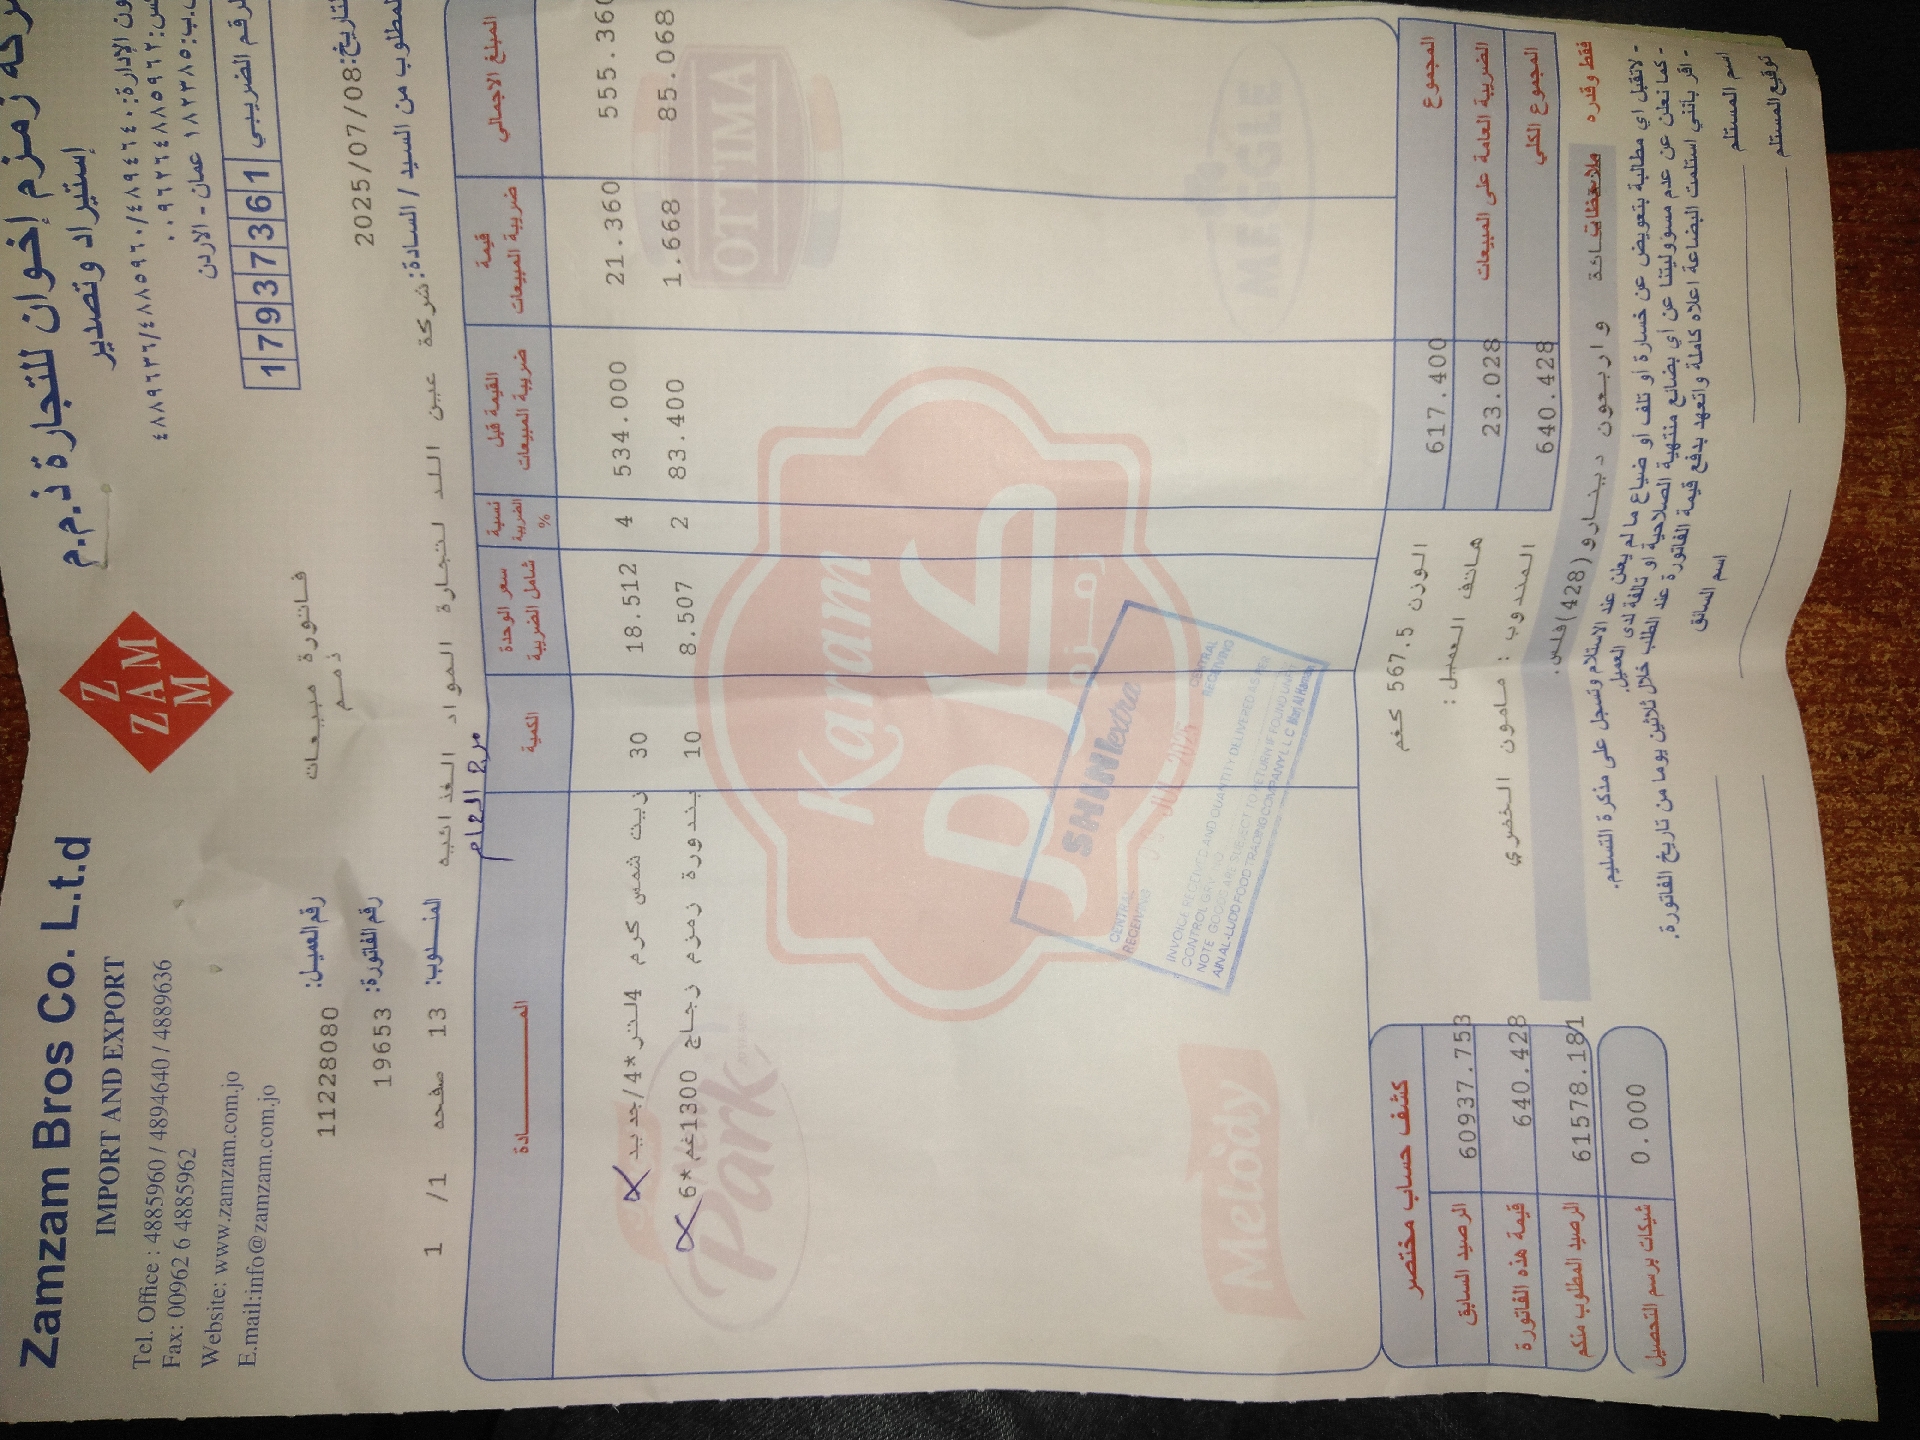 Zamzam Bros Co. L.t.d
IMPORT AND EXPORT
Tel. Office : 4885960 / 4894640 / 4889636
Fax: 00962 6 4885962
Website: www.zamzam.com.jo
E.mail:info@zamzam.com.jo
Z
ZAM
M
زمزم إخوان للتجارة ذ.م.م
إستيراد وتصدير
ون الإدارة: ٤٨٨٩٦٣٦/٤٨٨٥٩٦٠/٤٨٩٤٦٤٠
٠٠٩٦٢٦٤٨٨٥٩٦٢
١٨٢٣٨٥ عمان - الاردن
لرقم الضريبي 17937361
رقم العميل: 11228080
فاتورة مبيعات
ذمم
رقم الفاتورة: 19653
لتاريخ: 2025/07/08
المندوب: 13 صفحه 1/ 1
لمطلوب من السيد / السادة: شركة عين اللد لتجارة المواد الغذائيه
مرج الحمام
المـادة الكمية سعر الوحدة شامل الضريبة نسبة الضريبة % القيمة قبل ضريبة المبيعات قيمة ضريبة المبيعات المبلغ الاجمالي
زيت شمس كرم 4لتر*4/جديد 30 18.512 4 534.000 21.360 555.360
بندورة زمزم زجاج 1300غم*6 10 8.507 2 83.400 1.668 85.068
OTTIMA
Karam
زمزم
Park
Melody
MEGGLE
SHINIextra
CENTRAL RECEIVING
CENTRAL RECEIVING
JUL 2025
INVOICE RECEIVED AND QUANTITY DELIVERED AS PER
NOTE GOODS ARE SUBJECT TO RETURN IF FOUND UNFIT
AIN AL-LUDD FOOD TRADING COMPANY L.L.C Marj Al Hamam
الوزن 567.5 كغم
هاتف العميل :
المندوب : مامون الخضري
المجموع 617.400
الضريبة العامة على المبيعات 23.028
المجموع الكلي 640.428
كشف حساب مختصر
الرصيد السابق 60937.753
قيمة هذه الفاتورة 640.428
الرصيد المطلوب منكم 61578.181
شيكات برسم التحصيل 0.000
فقط وقدره
ملاحظات
واربعون دينارو(428)فلس.
- لانقبل اي مطالبة بتعويض عن خسارة أو تلف أو ضياع ما لم يعلن عند الاستلام وتسجل على مذكرة التسليم.
- كما نعلن عن عدم مسؤوليتنا عن أي بضائع منتهية الصلاحية أو تالفة لدى العميل.
- اقر بأنني استلمت البضاعة اعلاه كاملة واتعهد بدفع قيمة الفاتورة عند الطلب خلال ثلاثين يوما من تاريخ الفاتورة.
اسم المستلم
اسم السائق
توقيع المستلم